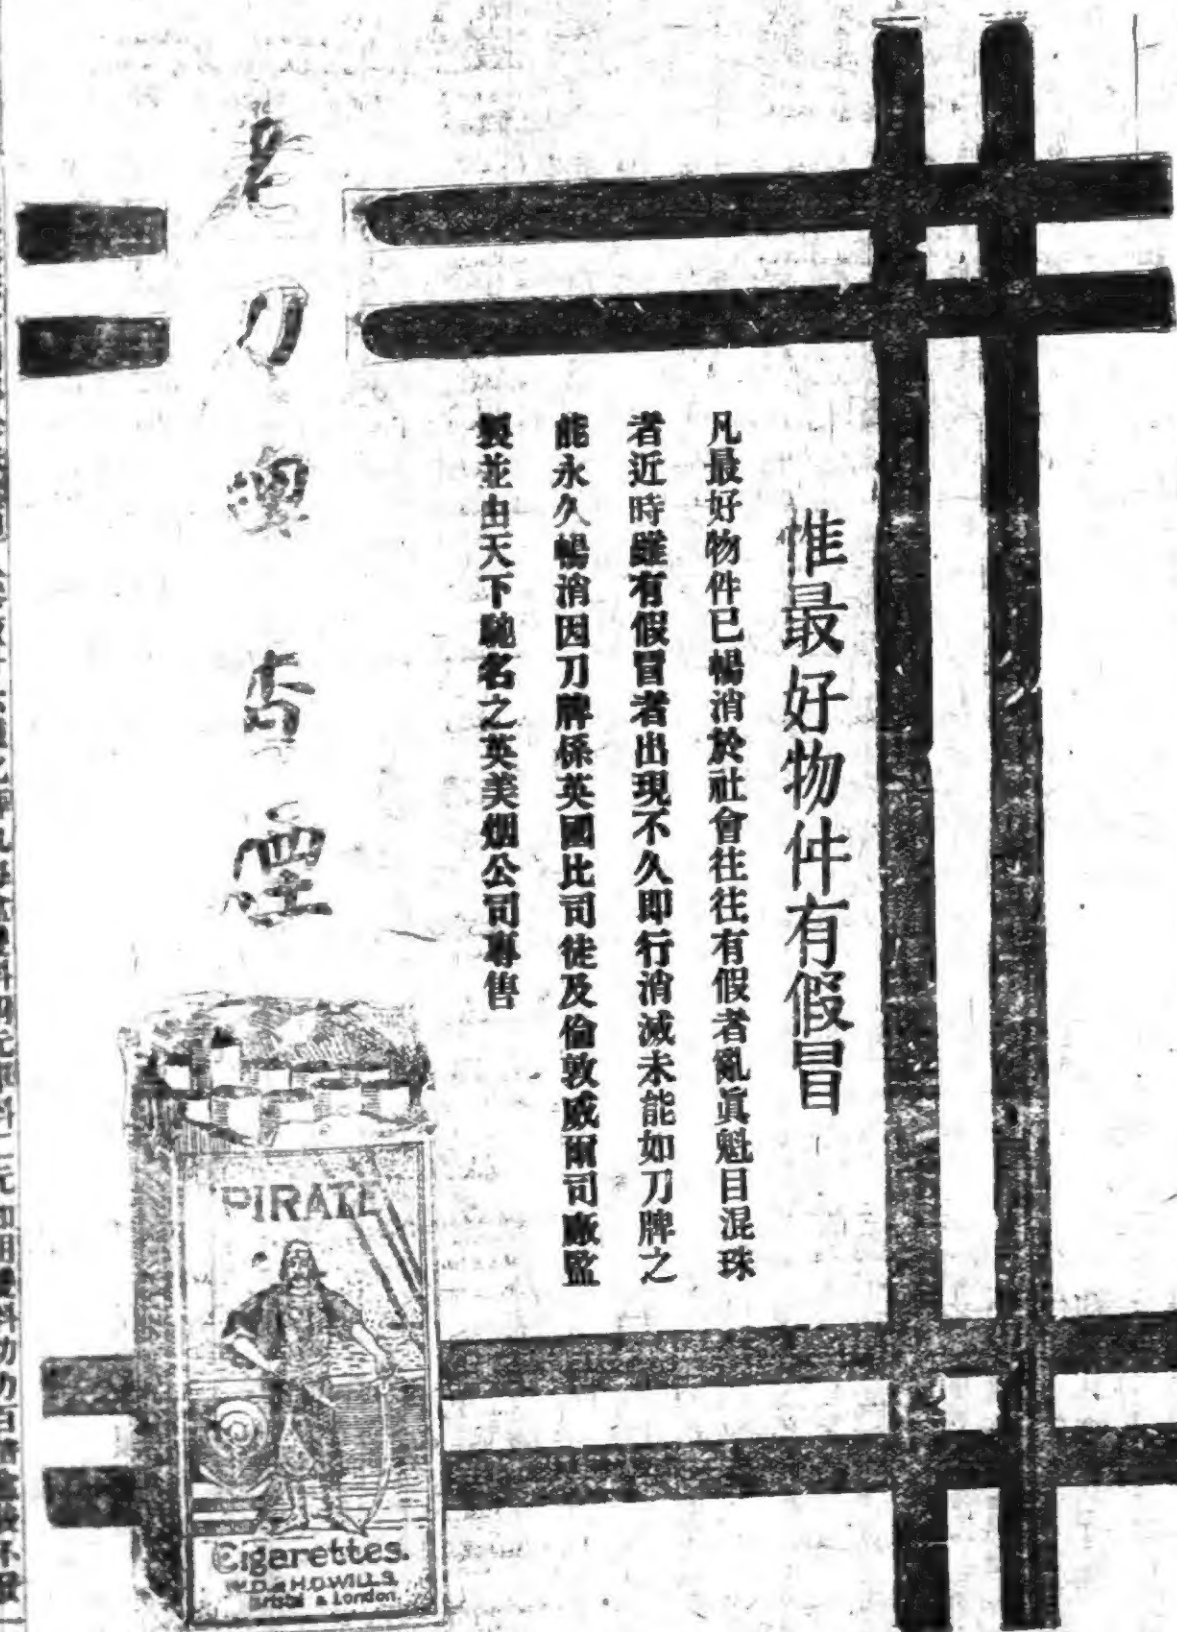 惟最好物件有假冒
凡最好物件已暢消於社會往往有假者亂眞魁目混珠
者近時雖有假冒者出現不久即行消滅未能如刀牌之
能永久暢消因刀牌係英國比司徒及倫敦威爾司廠監
製並由天下馳名之英美烟公司專售
老刀牌香煙
PIRATE
Cigarettes.
W.D. & H.O. WILLS.
Bristol & London.